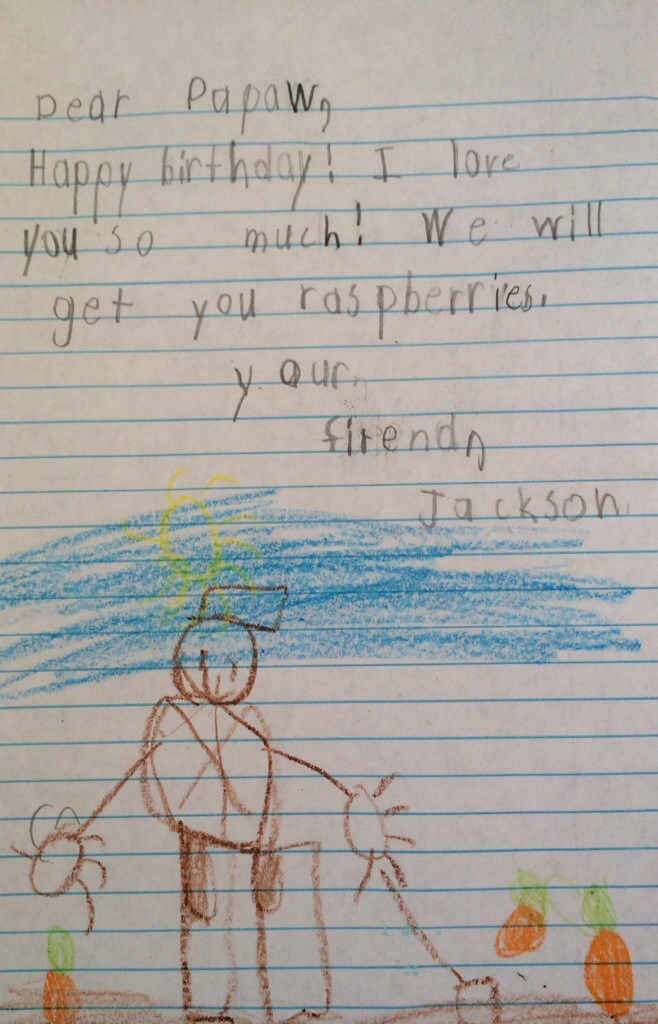 Dear Papaw,
Happy birthday! I love
you so much! We will
get you raspberries.
your
firend,
Jackson